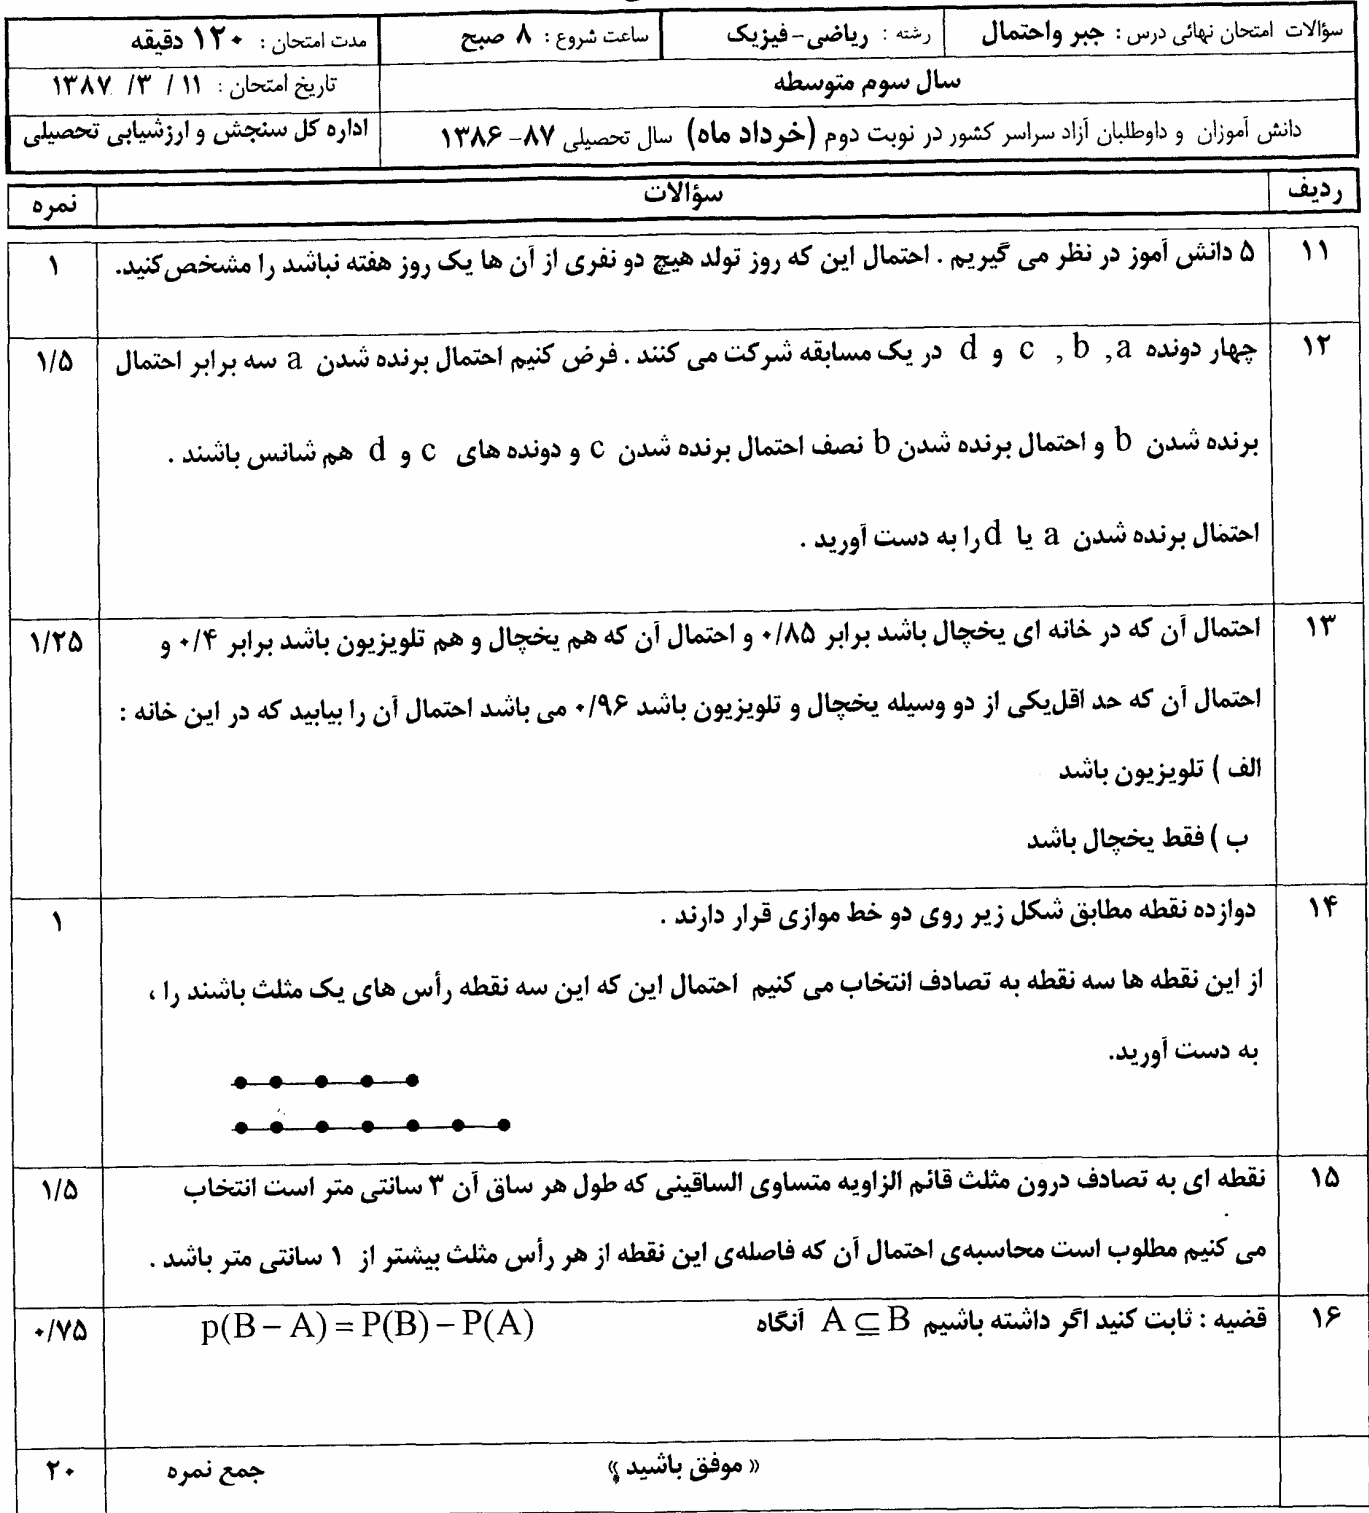 سؤالات امتحان نهائی درس : جبر واحتمال رشته : ریاضی-فیزیک ساعت شروع : ۸ صبح مدت امتحان : ۱۲۰ دقیقه
سال سوم متوسطه تاریخ امتحان : ۱۱ / ۳/ ۱۳۸۷
دانش آموزان و داوطلبان آزاد سراسر کشور در نوبت دوم (خرداد ماه) سال تحصیلی ۸۷-۱۳۸۶ اداره کل سنجش و ارزشیابی تحصیلی
ردیف سؤالات نمره
۱۱ ۵ دانش آموز در نظر می گیریم . احتمال این که روز تولد هیچ دو نفری از آن ها یک روز هفته نباشد را مشخص کنید. ۱
۱۲ چهار دونده a , b , c و d در یک مسابقه شرکت می کنند . فرض کنیم احتمال برنده شدن a سه برابر احتمال ۱/۵
برنده شدن b و احتمال برنده شدن b نصف احتمال برنده شدن c و دونده های c و d هم شانس باشند .
احتمال برنده شدن a یا d را به دست آورید .
۱۳ احتمال آن که در خانه ای یخچال باشد برابر ۰/۸۵ و احتمال آن که هم یخچال و هم تلویزیون باشد برابر ۰/۴ و ۱/۲۵
احتمال آن که حد اقل‌یکی از دو وسیله یخچال و تلویزیون باشد ۰/۹۶ می باشد احتمال آن را بیابید که در این خانه :
الف ) تلویزیون باشد
ب ) فقط یخچال باشد
۱۴ دوازده نقطه مطابق شکل زیر روی دو خط موازی قرار دارند . ۱
از این نقطه ها سه نقطه به تصادف انتخاب می کنیم احتمال این که این سه نقطه رأس های یک مثلث باشند را ،
به دست آورید.
۱۵ نقطه ای به تصادف درون مثلث قائم الزاویه متساوی الساقینی که طول هر ساق آن ۳ سانتی متر است انتخاب ۱/۵
می کنیم مطلوب است محاسبه‌ی احتمال آن که فاصله‌ی این نقطه از هر رأس مثلث بیشتر از ۱ سانتی متر باشد .
۱۶ قضیه : ثابت کنید اگر داشته باشیم A ⊆ B آنگاه p(B – A) = P(B) – P(A) ۰/۷۵
« موفق باشید » جمع نمره ۲۰